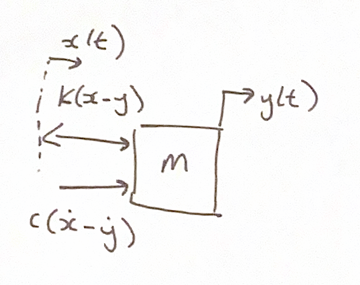 x(t)
K(x-y)
y(t)
m
c(ẋ-ẏ)